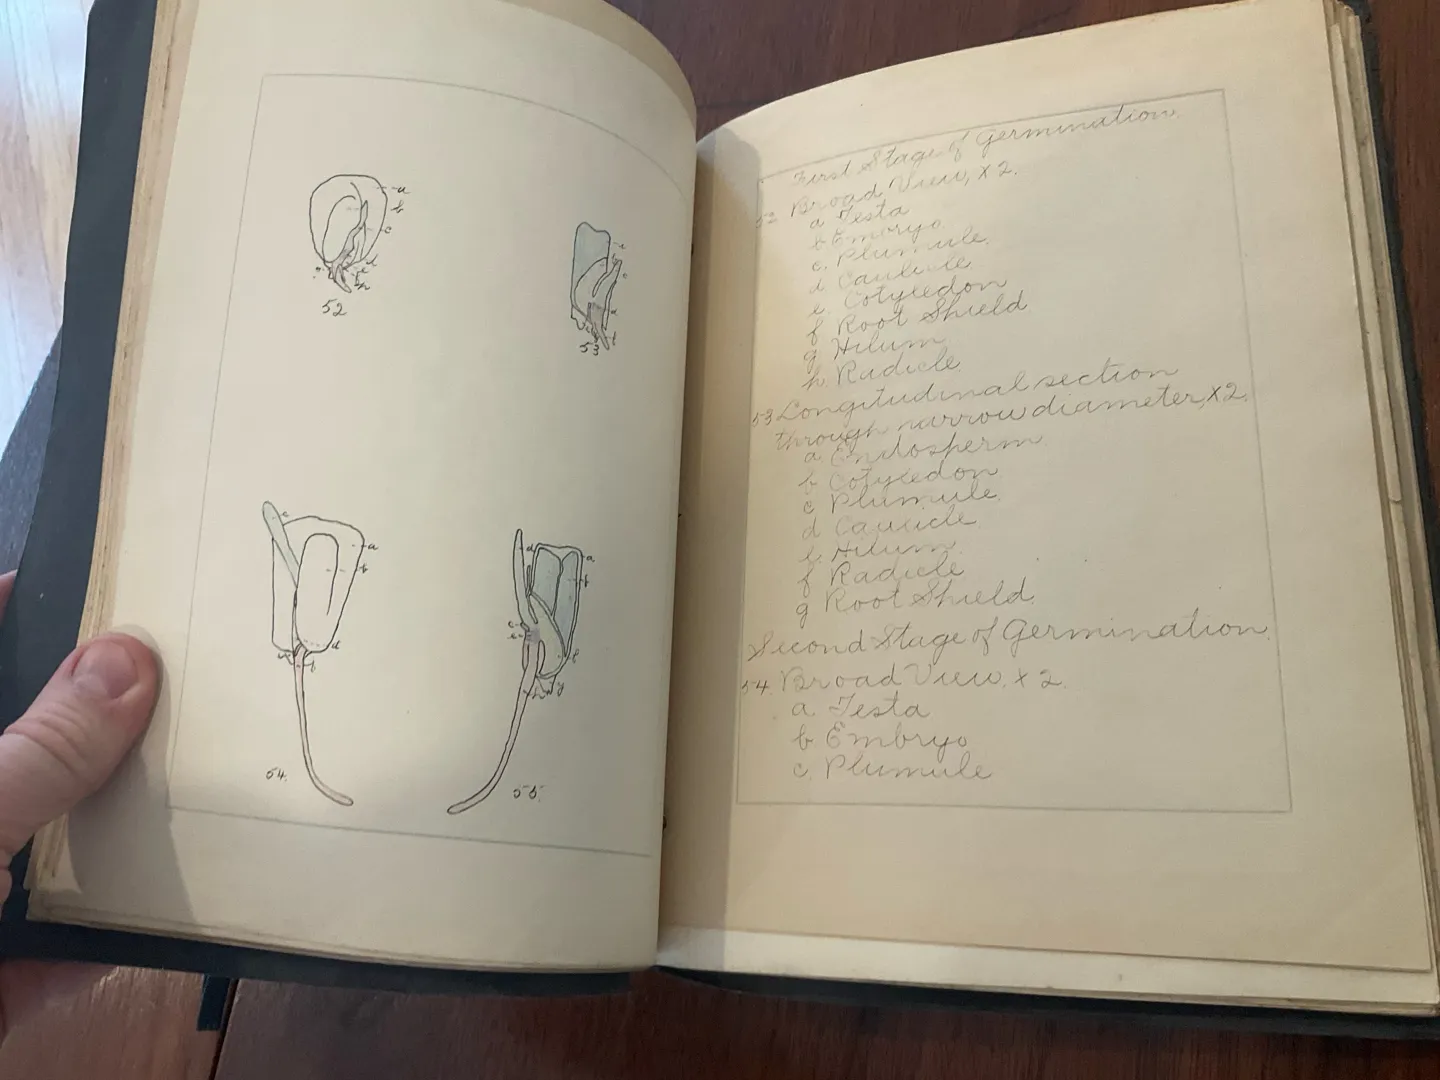 52
53
54.
55.
First Stage of Germination.
52 Broad View, x 2.
a Testa
b Embryo
c. Plumule.
d Caulicle.
e. Cotyledon
f Root Shield
g Hilum
h Radicle.
53 Longitudinal section
through narrow diameter, x 2.
a Endosperm
b Cotyledon
c Plumule.
d Caulicle
e. Hilum.
f Radicle
g Root Shield.
Second Stage of Germination.
54. Broad View. x 2.
a. Testa
b Embryo
c. Plumule